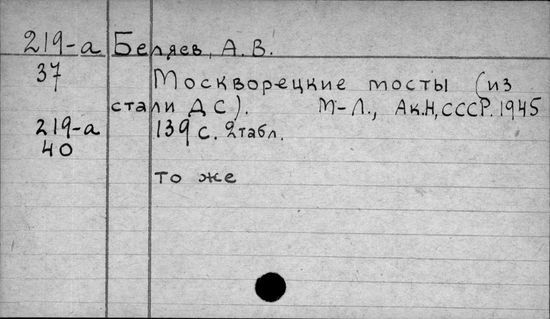 219-а Беляев, А. В.
37 Москворецкие мосты (из
стали ДС). М-Л., Ак.Н,СССР. 1945
219-а 139 с. 2табл.
40
то же